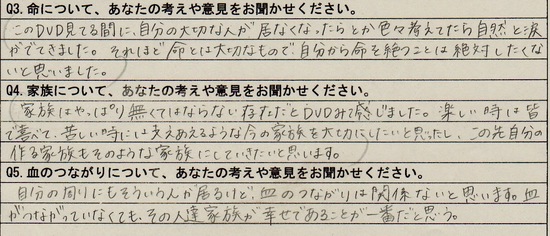 Q3. 命について、あなたの考えや意見をお聞かせください。
このDVD見てる間に、自分の大切な人が居なくなったらとか色々考えてたら自然と涙
がでてきました。それほど命とは大切なもので自分から命を絶つことは絶対したくな
いと思いました。
Q4. 家族について、あなたの考えや意見をお聞かせください。
家族はやっぱり無くてはならない存在だとDVDみて感じました。楽しい時は皆
で喜べて、苦しい時には支えあえるような今の家族を大切にしたいと思ったし、この先自分の
作る家族もそのような家族にしていきたいと思います。
Q5. 血のつながりについて、あなたの考えや意見をお聞かせください。
自分の周りにもそういう人が居るけど、血のつながりは関係ないと思います。血
がつながっていなくても、その人達家族が幸せであることが一番だと思う。